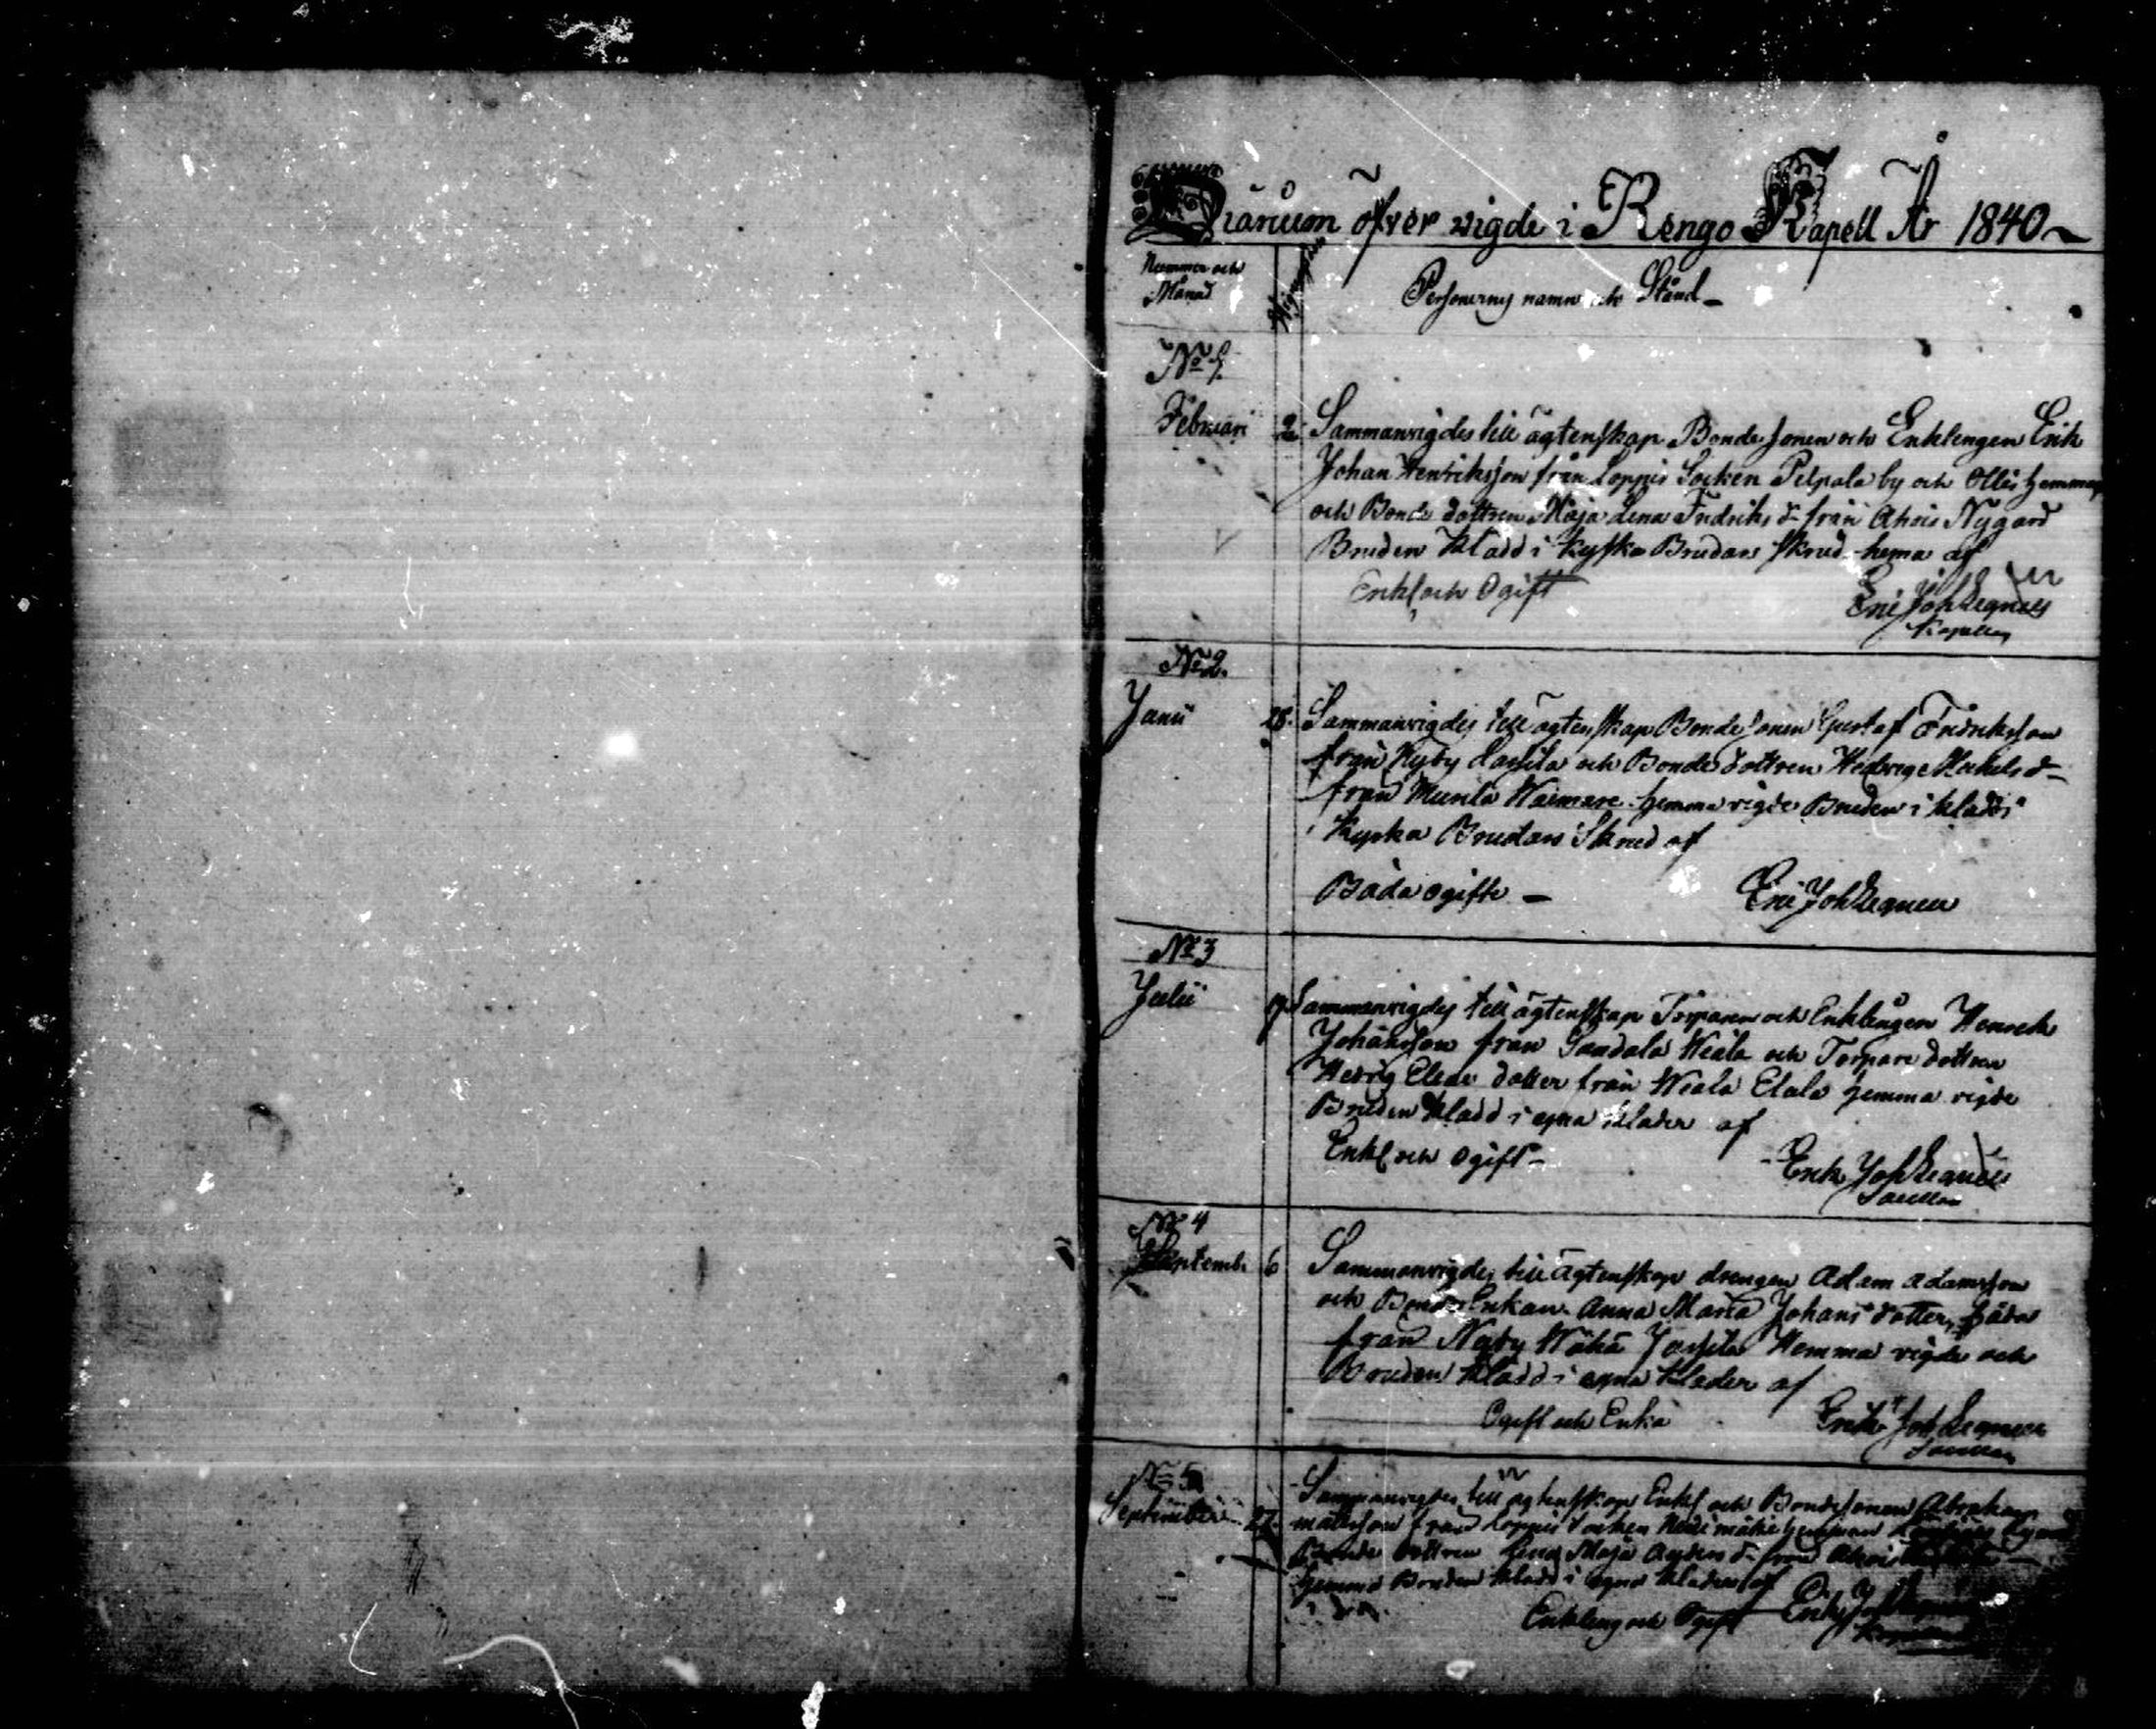 Diarium öfver vigde i Rengo Kapell År 1840
Nummer och
Månad
Personernes namn och Stånd
No 1.
Februari 2 Sammanvigdes till ägtenskap Bonde sonen och Enklingen Erik
Johan Henriksson från Loppis Socken Pilpala by och Ollis hemman
och Bonde dottren Maja Lena Fredriks dr från Ahois Nygård
Bruden klädd i kyrko Brudans skrud hema af
Enkl och Ogift Eric Joh Legnell
Kapellan
No 2.
Junii 28. Sammanvigdes till ägtenskap Bonde sonen Gustaf Fredriksson
från Nyby Jassila och Bonde dottren Hedvig Mickels dr
från Murila Waimare hemma vigde Bruden i klädd
i Kyrko Brudans Skrud af
Båda ogifte Eric Joh Legnell
No 3
Julii 7 Sammanvigdes till ägtenskap Torparen och Enklingen Henrick
Johansson från Sandala Wiala och Torpare dottren
Hedvig Elias dotter från Wiala Elala hemma vigde
Bruden klädd i egna kläder af
Enkl och Ogift Erik Joh Legnell
No 4
Septemb 6 Sammanvigdes till ägtenskap drengen Adam Adamsson
och Bonde Enkan Anna Maria Johans dotter, båda
från Nyby Wähä Jassila Hemma vigde och
Bruden klädd i egna kläder af
Ogift och Enka Erik Joh Legnell
No 5
September 27. Sammanvigdes till ägtenskap Enkl och Bondesonen Abraham
från Loppis Socken
Bonde dottren Maja Anders dr från Ahois
hemma Bruden klädd i egna kläder af
Enkling och Ogift Erik Joh